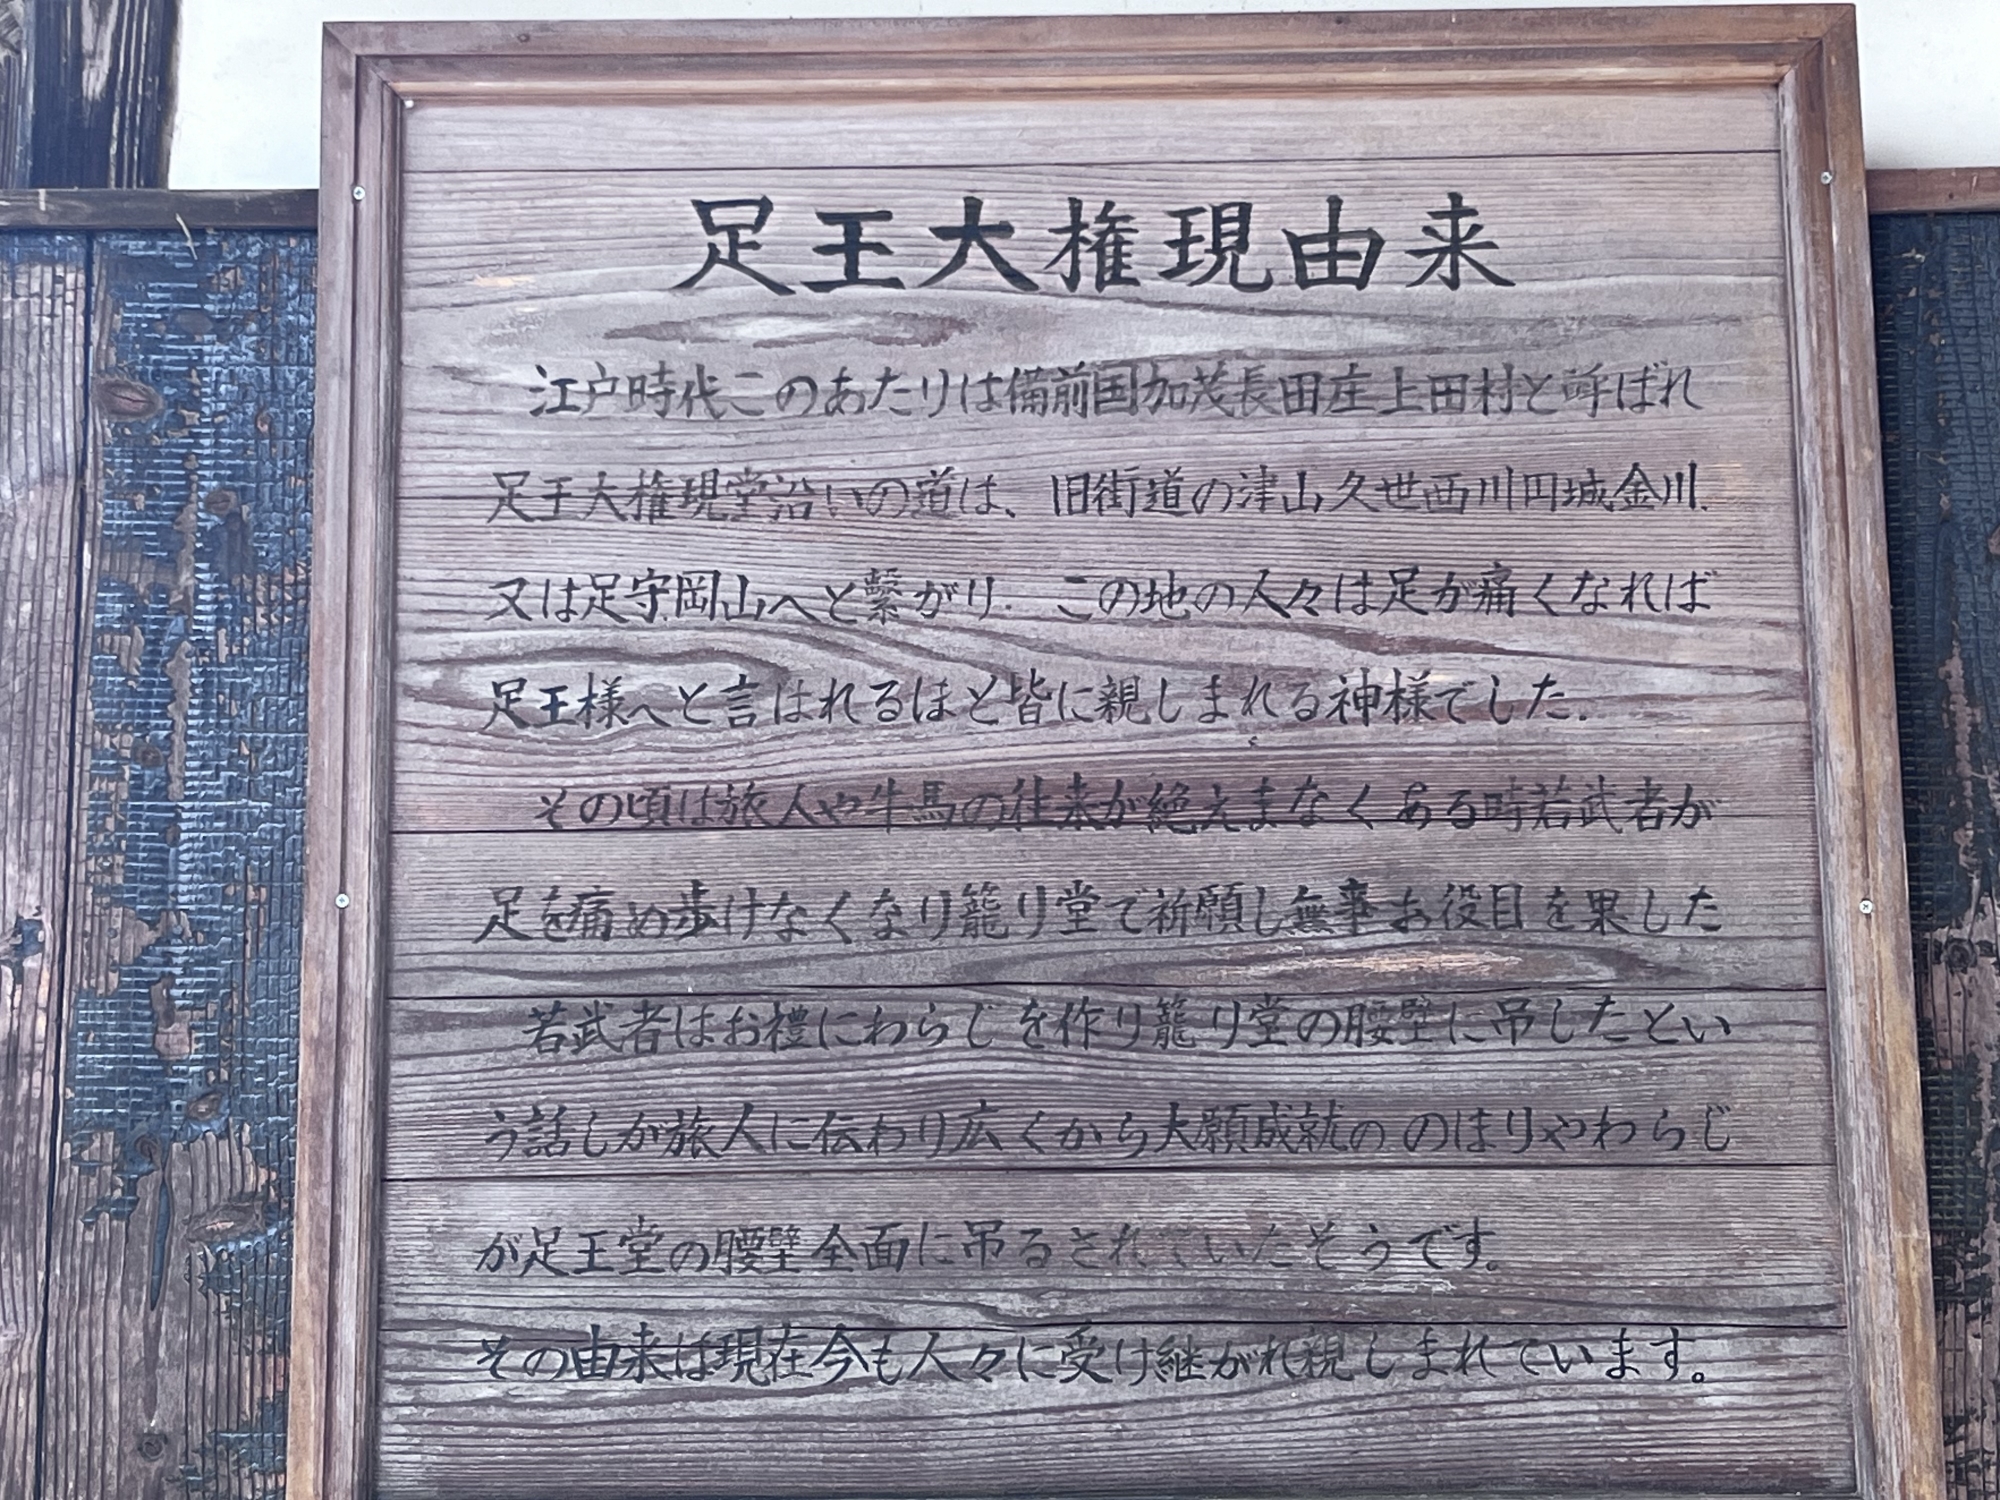 足王大権現由来
江戸時代このあたりは備前国加茂長田庄上田村と呼ばれ
足王大権現堂沿いの道は、旧街道の津山久世西川円城金川.
又は足守岡山へと繋がり.この地の人々は足が痛くなれば
足王様へと言はれるほと皆に親しまれる神様でした.
その頃は旅人や牛馬の往来が絶えまなくある時若武者が
足を痛め歩けなくなり籠り堂で祈願し無事お役目を果した
若武者はお禮にわらじを作り籠り堂の腰壁に吊したとい
う話しが旅人に伝わり広くから大願成就ののほりやわらじ
が足王堂の腰壁全面に吊るされていたそうです。
その由来は現在今も人々に受け継がれ親しまれています。